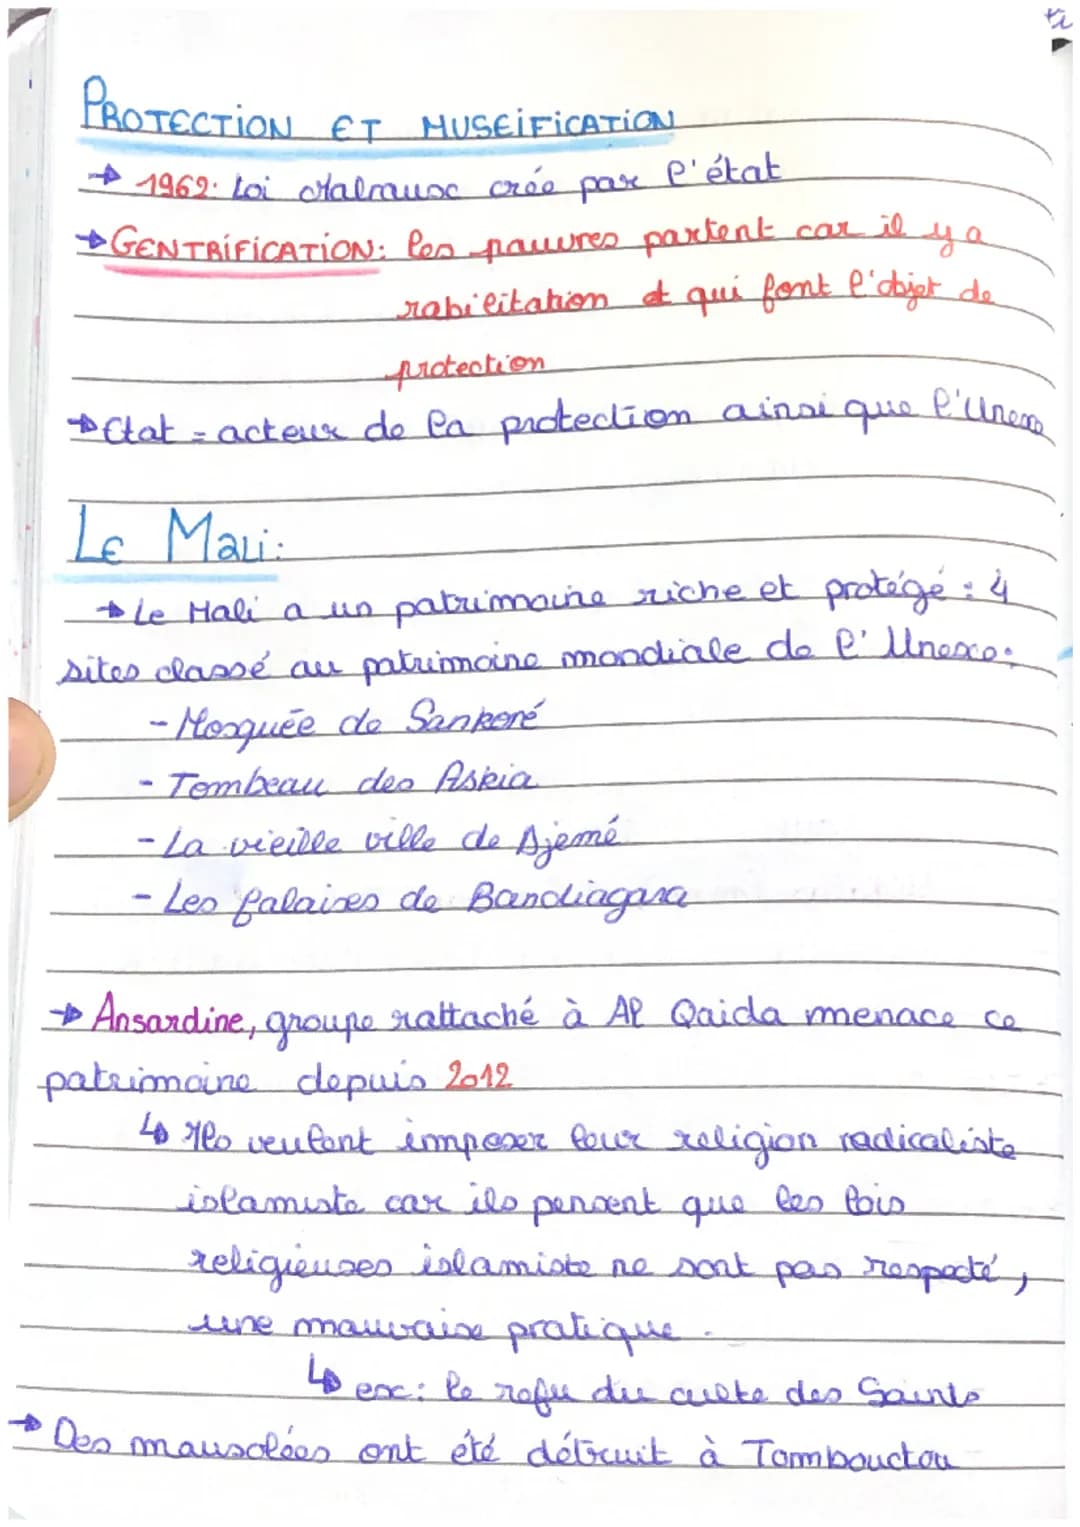 PROTECTION ET MUSEIFICATION
→ 1962: Loi Malraux crée par l'état
→ GENTRIFICATION: les pauvres partent car il y a
rabilitation et qui font l'objet de
protection
→ Etat = acteur de la protection ainsi que l'Unesco
Le Mali:
→ Le Mali a un patrimoine riche et protégé : 4
sites classé au patrimoine mondiale de l'Unesco:
- Mosquée de Sankoré
- Tombeau des Askia
- La vieille ville de Djemé
- Les falaises de Bandiagara
→ Ansardine, groupe rattaché à Al Qaida menace ce
patrimoine depuis 2012
↳ Ils veulent imposer leur religion radicaliste
islamiste car ils pensent que les lois
religieuses islamiste ne sont pas respecté,
une mauvaise pratique.
↳ ex: le refu du culte des Saints
→ Des mausolées ont été détruit à Tombouctou